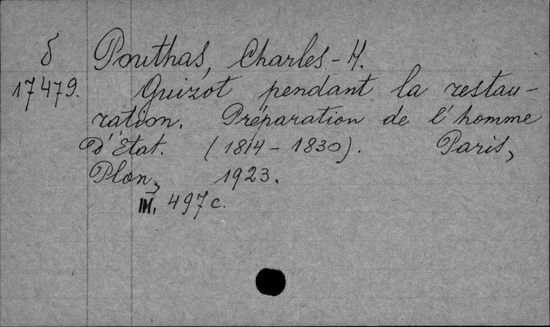 δ Pouthas, Charles-H.
17479. Guizot pendant la restau-
ration. Préparation de l'homme
d'Etat. (1814-1830). Paris,
Plon, 1923.
III, 497 c.